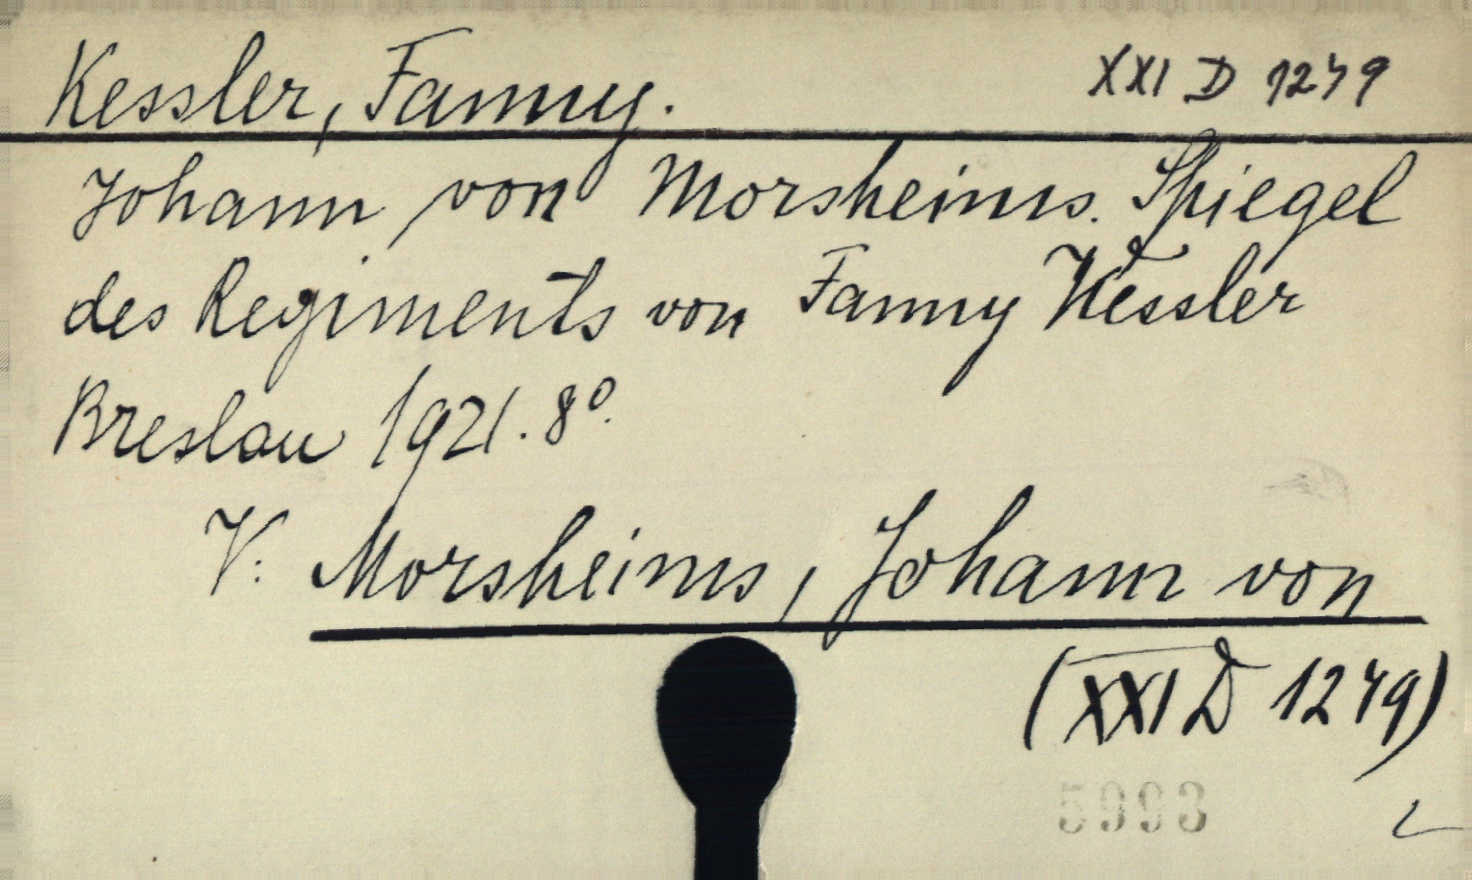 Kessler, Fanny. XXI D 1249
Johann von Morsheims. Spiegel
des Regiments von Fanny Kessler
Breslau 1921. 8°.
V: Morsheims, Johann von
(XXI D 1249)
5993